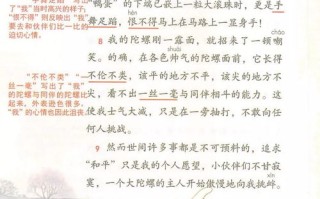 "鸭蛋"的下端已嵌上一粒大滚珠时，更是手
舞足蹈，恨不得马上在马路上一显身手！
cháo
8 我的陀螺刚一露面，就招来了一顿嘲
shuài
笑。的确，在各色帅气的陀螺面前，它长得
不伦不类，该平的地方不平，该尖的地方不
尖，看不出一丝一毫与同伴相斗的能力。这
使我士气大减，只是在一旁抽打，不敢向任
何人挑战。
9 然而世间许多事都是不可预料的，追求
"和平"只是我的个人愿望，小伙伴们不甘寂
xìn
寞，一个大陀螺的主人开始傲慢地向我挑衅。
了"我"当时高兴的样子；
"恨不得"则反映出"我"
要去和伙伴们比一比的
迫切心情。
"不伦不类""一
丝一毫"写出了"我"
的陀螺与同伴的陀螺比
起来，外表逊色很多。
"我"的心情也因此沮丧。